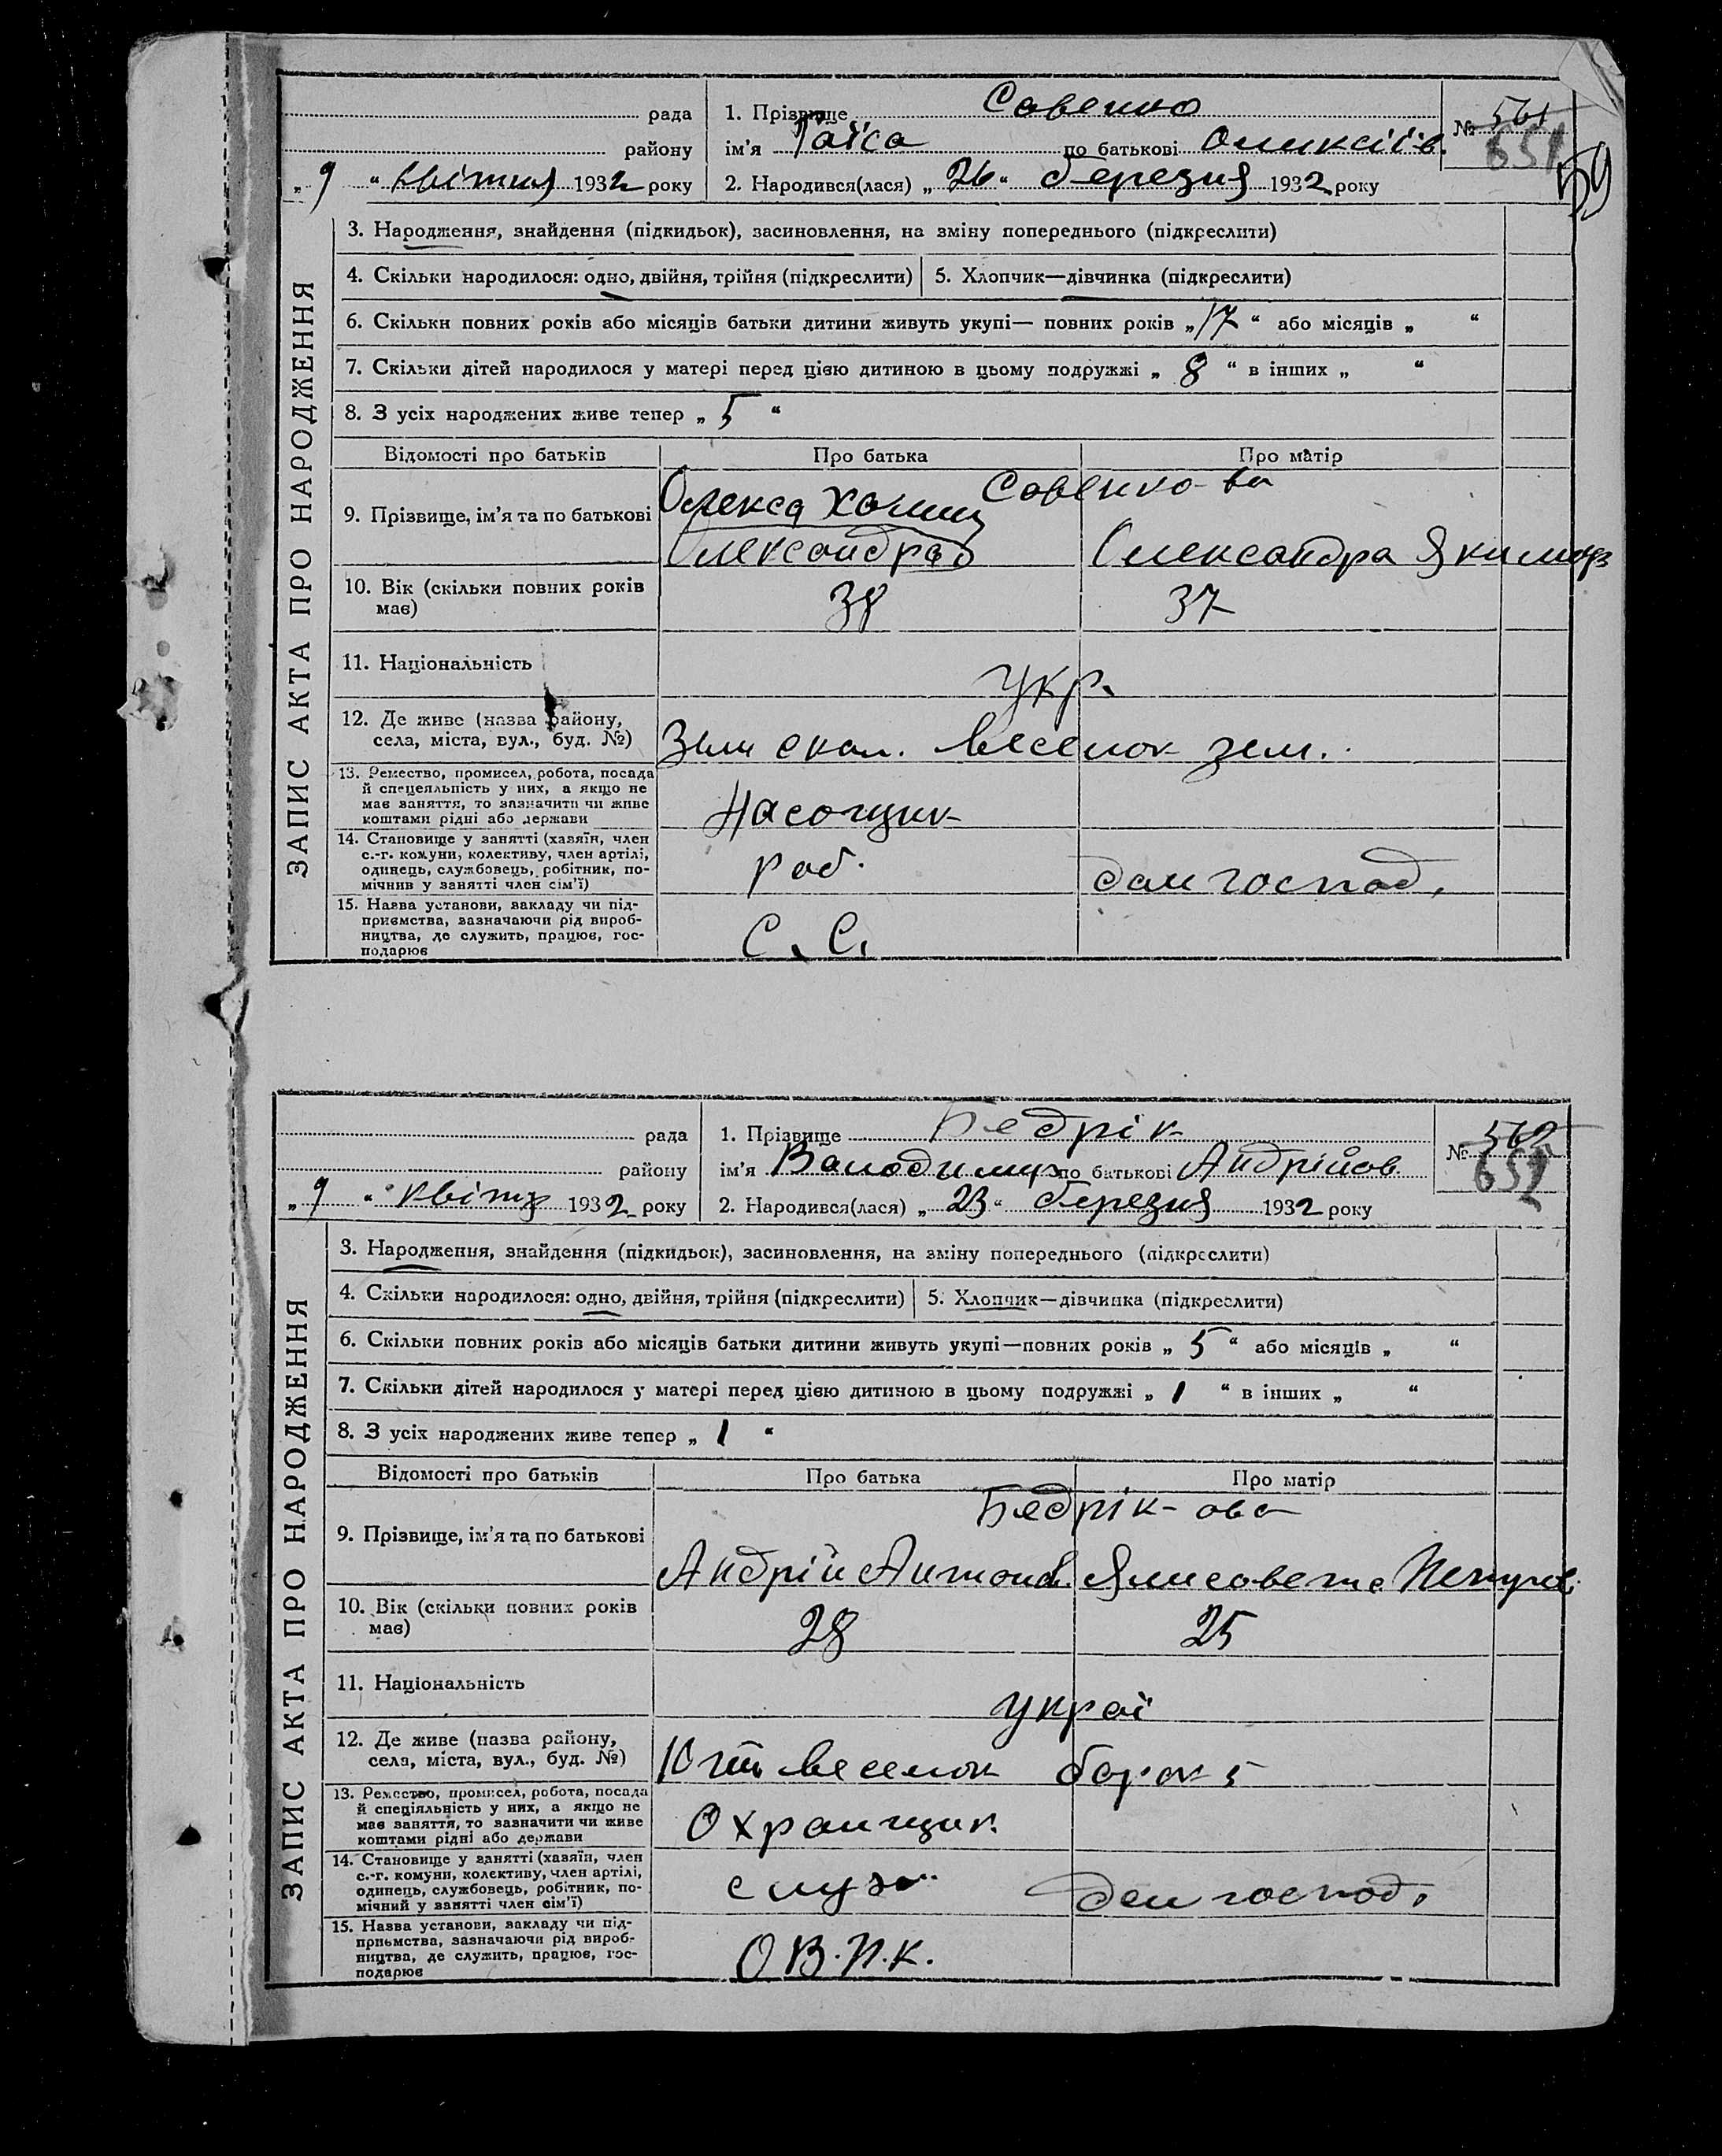 рада
1. Прізвище Савенко
№ 561
651
59
району
ім'я Таїса по батькові Олексіїв.
„9“ квітня 1932 року
2. Народився(лася) „26“ березня 1932 року
ЗАПИС АКТА ПРО НАРОДЖЕННЯ
3. Народження, знайдення (підкидьок), засиновлення, на зміну попереднього (підкреслити)
4. Скільки народилося: одно, двійня, трійня (підкреслити)
5. Хлопчик—дівчинка (підкреслити)
6. Скільки повних років або місяців батьки дитини живуть укупі— повних років „17“ або місяців „ “
7. Скільки дітей народилося у матері перед цією дитиною в цьому подружжі „8“ в інших „ “
8. З усіх народжених живе тепер „5“
Відомості про батьків
Про батька
Про матір
Савенко-ва
9. Прізвище, ім'я та по батькові
Олекса
Олександра
10. Вік (скільки повних років має)
38
37
11. Національність
укр.
12. Де живе (назва району,
села, міста, вул., буд. №)
Веселок зем.
13. Ремество, промисел, робота, посада
й спецеяльність у них, а якщо не
має заняття, то зазначити чи живе
коштами рідні або держави
Насощик
14. Становище у занятті (хазяїн, член
с.-г. комуни, колективу, член артілі,
одинець, службовець, робітник, по-
мічнив у занятті член сім'ї)
роб.
дом господ.
15. Назва установи, закладу чи під-
приємства, зазначаючи рід вироб-
ництва, де служить, працює, гос-
подарює
С. С.
рада
1. Прізвище Бедрік
№ 562
652
району
ім'я Володимир по батькові Андрійов.
„9“ квітн 1932 року
2. Народився(лася) „23“ березня 1932 року
ЗАПИС АКТА ПРО НАРОДЖЕННЯ
3. Народження, знайдення (підкидьок), засиновлення, на зміну попереднього (підкреслити)
4. Скільки народилося: одно, двійня, трійня (підкреслити)
5. Хлопчик—дівчинка (підкреслити)
6. Скільки повних років або місяців батьки дитини живуть укупі—повних років „5“ або місяців „ “
7. Скільки дітей народилося у матері перед цією дитиною в цьому подружжі „1“ в інших „ “
8. З усіх народжених живе тепер „1“
Відомості про батьків
Про батька
Про матір
Бедрік-ова
9. Прізвище, ім'я та по батькові
Андрій Антонов.
Ялисовета
10. Вік (скільки повних років
має)
28
25
11. Національність
украї
12. Де живе (назва району,
села, міста, вул., буд. №)
Веселок барак 5
13. Ремество, промисел, робота, посада
й спеціяльність у них, а якщо не
має заняття, то зазначити чи живе
коштами рідні або держави
Охранщик
14. Становище у занятті (хазяїн, член
с.-г. комуни, колективу, член артілі,
одинець, службовець, робітник, по-
мічний у занятті член сім'ї)
служ.
дом господ.
15. Назва установи, закладу чи під-
приьмства, зазначаючи рід вироб-
ництва, де служить, працює, гос-
подарює
О В. П. К.